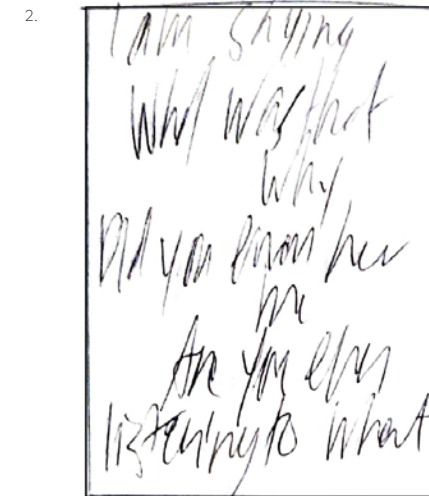 2.
I am saying
Why was that
Why
Did you know her
me
Are you even
listening to what